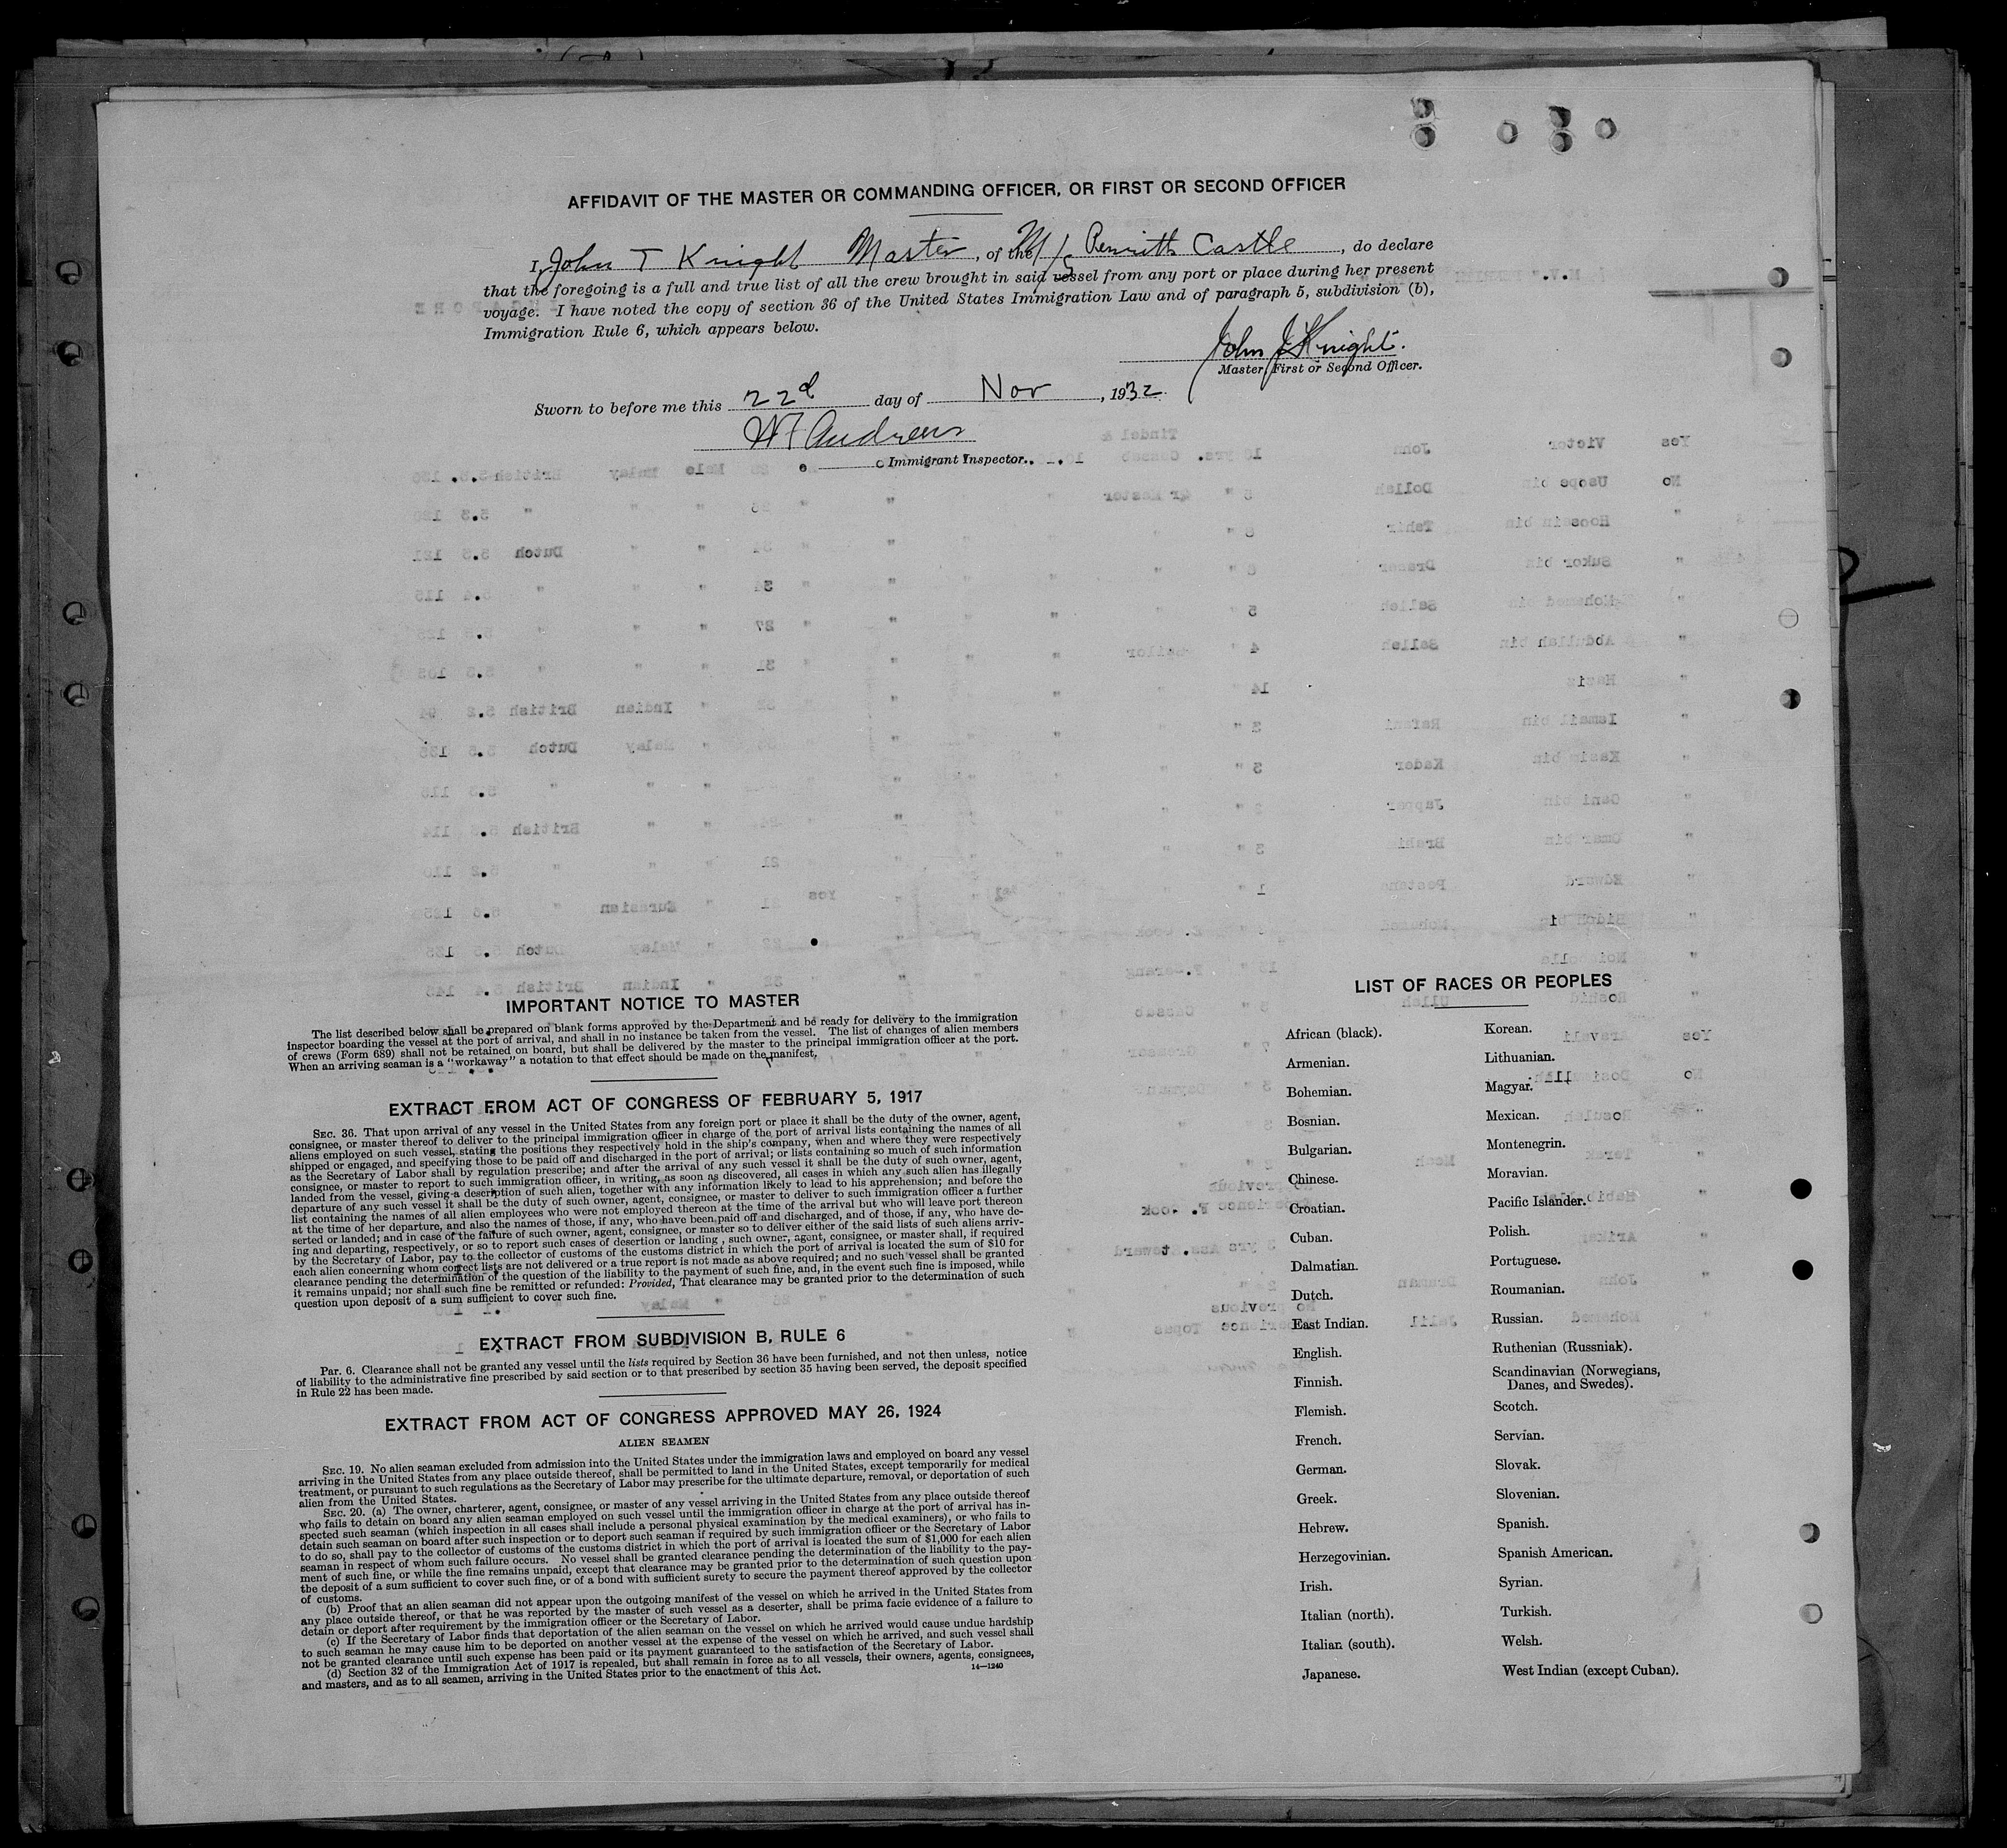 AFFIDAVIT OF THE MASTER OR COMMANDING OFFICER, OR FIRST OR SECOND OFFICER
I, John T Knight Master, of the M/S Penrith Castle, do declare
that the foregoing is a full and true list of all the crew brought in said vessel from any port or place during her present
voyage. I have noted the copy of section 36 of the United States Immigration Law and of paragraph 5, subdivision (b),
Immigration Rule 6, which appears below.
John T Knight.
Master, First or Second Officer.
Sworn to before me this 22d day of Nov, 1932.
Andrews
Immigrant Inspector.
IMPORTANT NOTICE TO MASTER
The list described below shall be prepared on blank forms approved by the Department and be ready for delivery to the immigration
inspector boarding the vessel at the port of arrival, and shall in no instance be taken from the vessel. The list of changes of alien members
of crews (Form 689) shall not be retained on board, but shall be delivered by the master to the principal immigration officer at the port.
When an arriving seaman is a "workaway" a notation to that effect should be made on the manifest.
EXTRACT FROM ACT OF CONGRESS OF FEBRUARY 5, 1917
SEC. 36. That upon arrival of any vessel in the United States from any foreign port or place it shall be the duty of the owner, agent,
consignee, or master thereof to deliver to the principal immigration officer in charge of the port of arrival lists containing the names of all
aliens employed on such vessel, stating the positions they respectively hold in the ship's company, when and where they were respectively
shipped or engaged, and specifying those to be paid off and discharged in the port of arrival; or lists containing so much of such information
as the Secretary of Labor shall by regulation prescribe; and after the arrival of any such vessel it shall be the duty of such owner, agent,
consignee, or master to report to such immigration officer, in writing, as soon as discovered, all cases in which any such alien has illegally
landed from the vessel, giving a description of such alien, together with any information likely to lead to his apprehension; and before the
departure of any such vessel it shall be the duty of such owner, agent, consignee, or master to deliver to such immigration officer a further
list containing the names of all alien employees who were not employed thereon at the time of the arrival but who will leave port thereon
at the time of her departure, and also the names of those, if any, who have been paid off and discharged, and of those, if any, who have de-
serted or landed; and in case of the failure of such owner, agent, consignee, or master so to deliver either of the said lists of such aliens arriv-
ing and departing, respectively, or so to report such cases of desertion or landing, such owner, agent, consignee, or master shall, if required
by the Secretary of Labor, pay to the collector of customs of the customs district in which the port of arrival is located the sum of $10 for
each alien concerning whom correct lists are not delivered or a true report is not made as above required; and no such vessel shall be granted
clearance pending the determination of the question of the liability to the payment of such fine, and, in the event such fine is imposed, while
it remains unpaid; nor shall such fine be remitted or refunded: Provided, That clearance may be granted prior to the determination of such
question upon deposit of a sum sufficient to cover such fine.
EXTRACT FROM SUBDIVISION B, RULE 6
Par. 6. Clearance shall not be granted any vessel until the lists required by Section 36 have been furnished, and not then unless, notice
of liability to the administrative fine prescribed by said section or to that prescribed by section 35 having been served, the deposit specified
in Rule 22 has been made.
EXTRACT FROM ACT OF CONGRESS APPROVED MAY 26, 1924
ALIEN SEAMEN
SEC. 19. No alien seaman excluded from admission into the United States under the immigration laws and employed on board any vessel
arriving in the United States from any place outside thereof, shall be permitted to land in the United States, except temporarily for medical
treatment, or pursuant to such regulations as the Secretary of Labor may prescribe for the ultimate departure, removal, or deportation of such
alien from the United States.
SEC. 20. (a) The owner, charterer, agent, consignee, or master of any vessel arriving in the United States from any place outside thereof
who fails to detain on board any alien seaman employed on such vessel until the immigration officer in charge at the port of arrival has in-
spected such seaman (which inspection in all cases shall include a personal physical examination by the medical examiners), or who fails to
detain such seaman on board after such inspection or to deport such seaman if required by such immigration officer or the Secretary of Labor
to do so, shall pay to the collector of customs of the customs district in which the port of arrival is located the sum of $1,000 for each alien
seaman in respect of whom such failure occurs. No vessel shall be granted clearance pending the determination of the liability to the pay-
ment of such fine, or while the fine remains unpaid, except that clearance may be granted prior to the determination of such question upon
the deposit of a sum sufficient to cover such fine, or of a bond with sufficient surety to secure the payment thereof approved by the collector
of customs.
(b) Proof that an alien seaman did not appear upon the outgoing manifest of the vessel on which he arrived in the United States from
any place outside thereof, or that he was reported by the master of such vessel as a deserter, shall be prima facie evidence of a failure to
detain or deport after requirement by the immigration officer or the Secretary of Labor.
(c) If the Secretary of Labor finds that deportation of the alien seaman on the vessel on which he arrived would cause undue hardship
to such seaman he may cause him to be deported on another vessel at the expense of the vessel on which he arrived, and such vessel shall
not be granted clearance until such expense has been paid or its payment guaranteed to the satisfaction of the Secretary of Labor.
(d) Section 32 of the Immigration Act of 1917 is repealed, but shall remain in force as to all vessels, their owners, agents, consignees,
and masters, and as to all seamen, arriving in the United States prior to the enactment of this Act.
14—1240
LIST OF RACES OR PEOPLES
African (black).
Armenian.
Bohemian.
Bosnian.
Bulgarian.
Chinese.
Croatian.
Cuban.
Dalmatian.
Dutch.
East Indian.
English.
Finnish.
Flemish.
French.
German.
Greek.
Hebrew.
Herzegovinian.
Irish.
Italian (north).
Italian (south).
Japanese.
Korean.
Lithuanian.
Magyar.
Mexican.
Montenegrin.
Moravian.
Pacific Islander.
Polish.
Portuguese.
Roumanian.
Russian.
Ruthenian (Russniak).
Scandinavian (Norwegians,
Danes, and Swedes).
Scotch.
Servian.
Slovak.
Slovenian.
Spanish.
Spanish American.
Syrian.
Turkish.
Welsh.
West Indian (except Cuban).